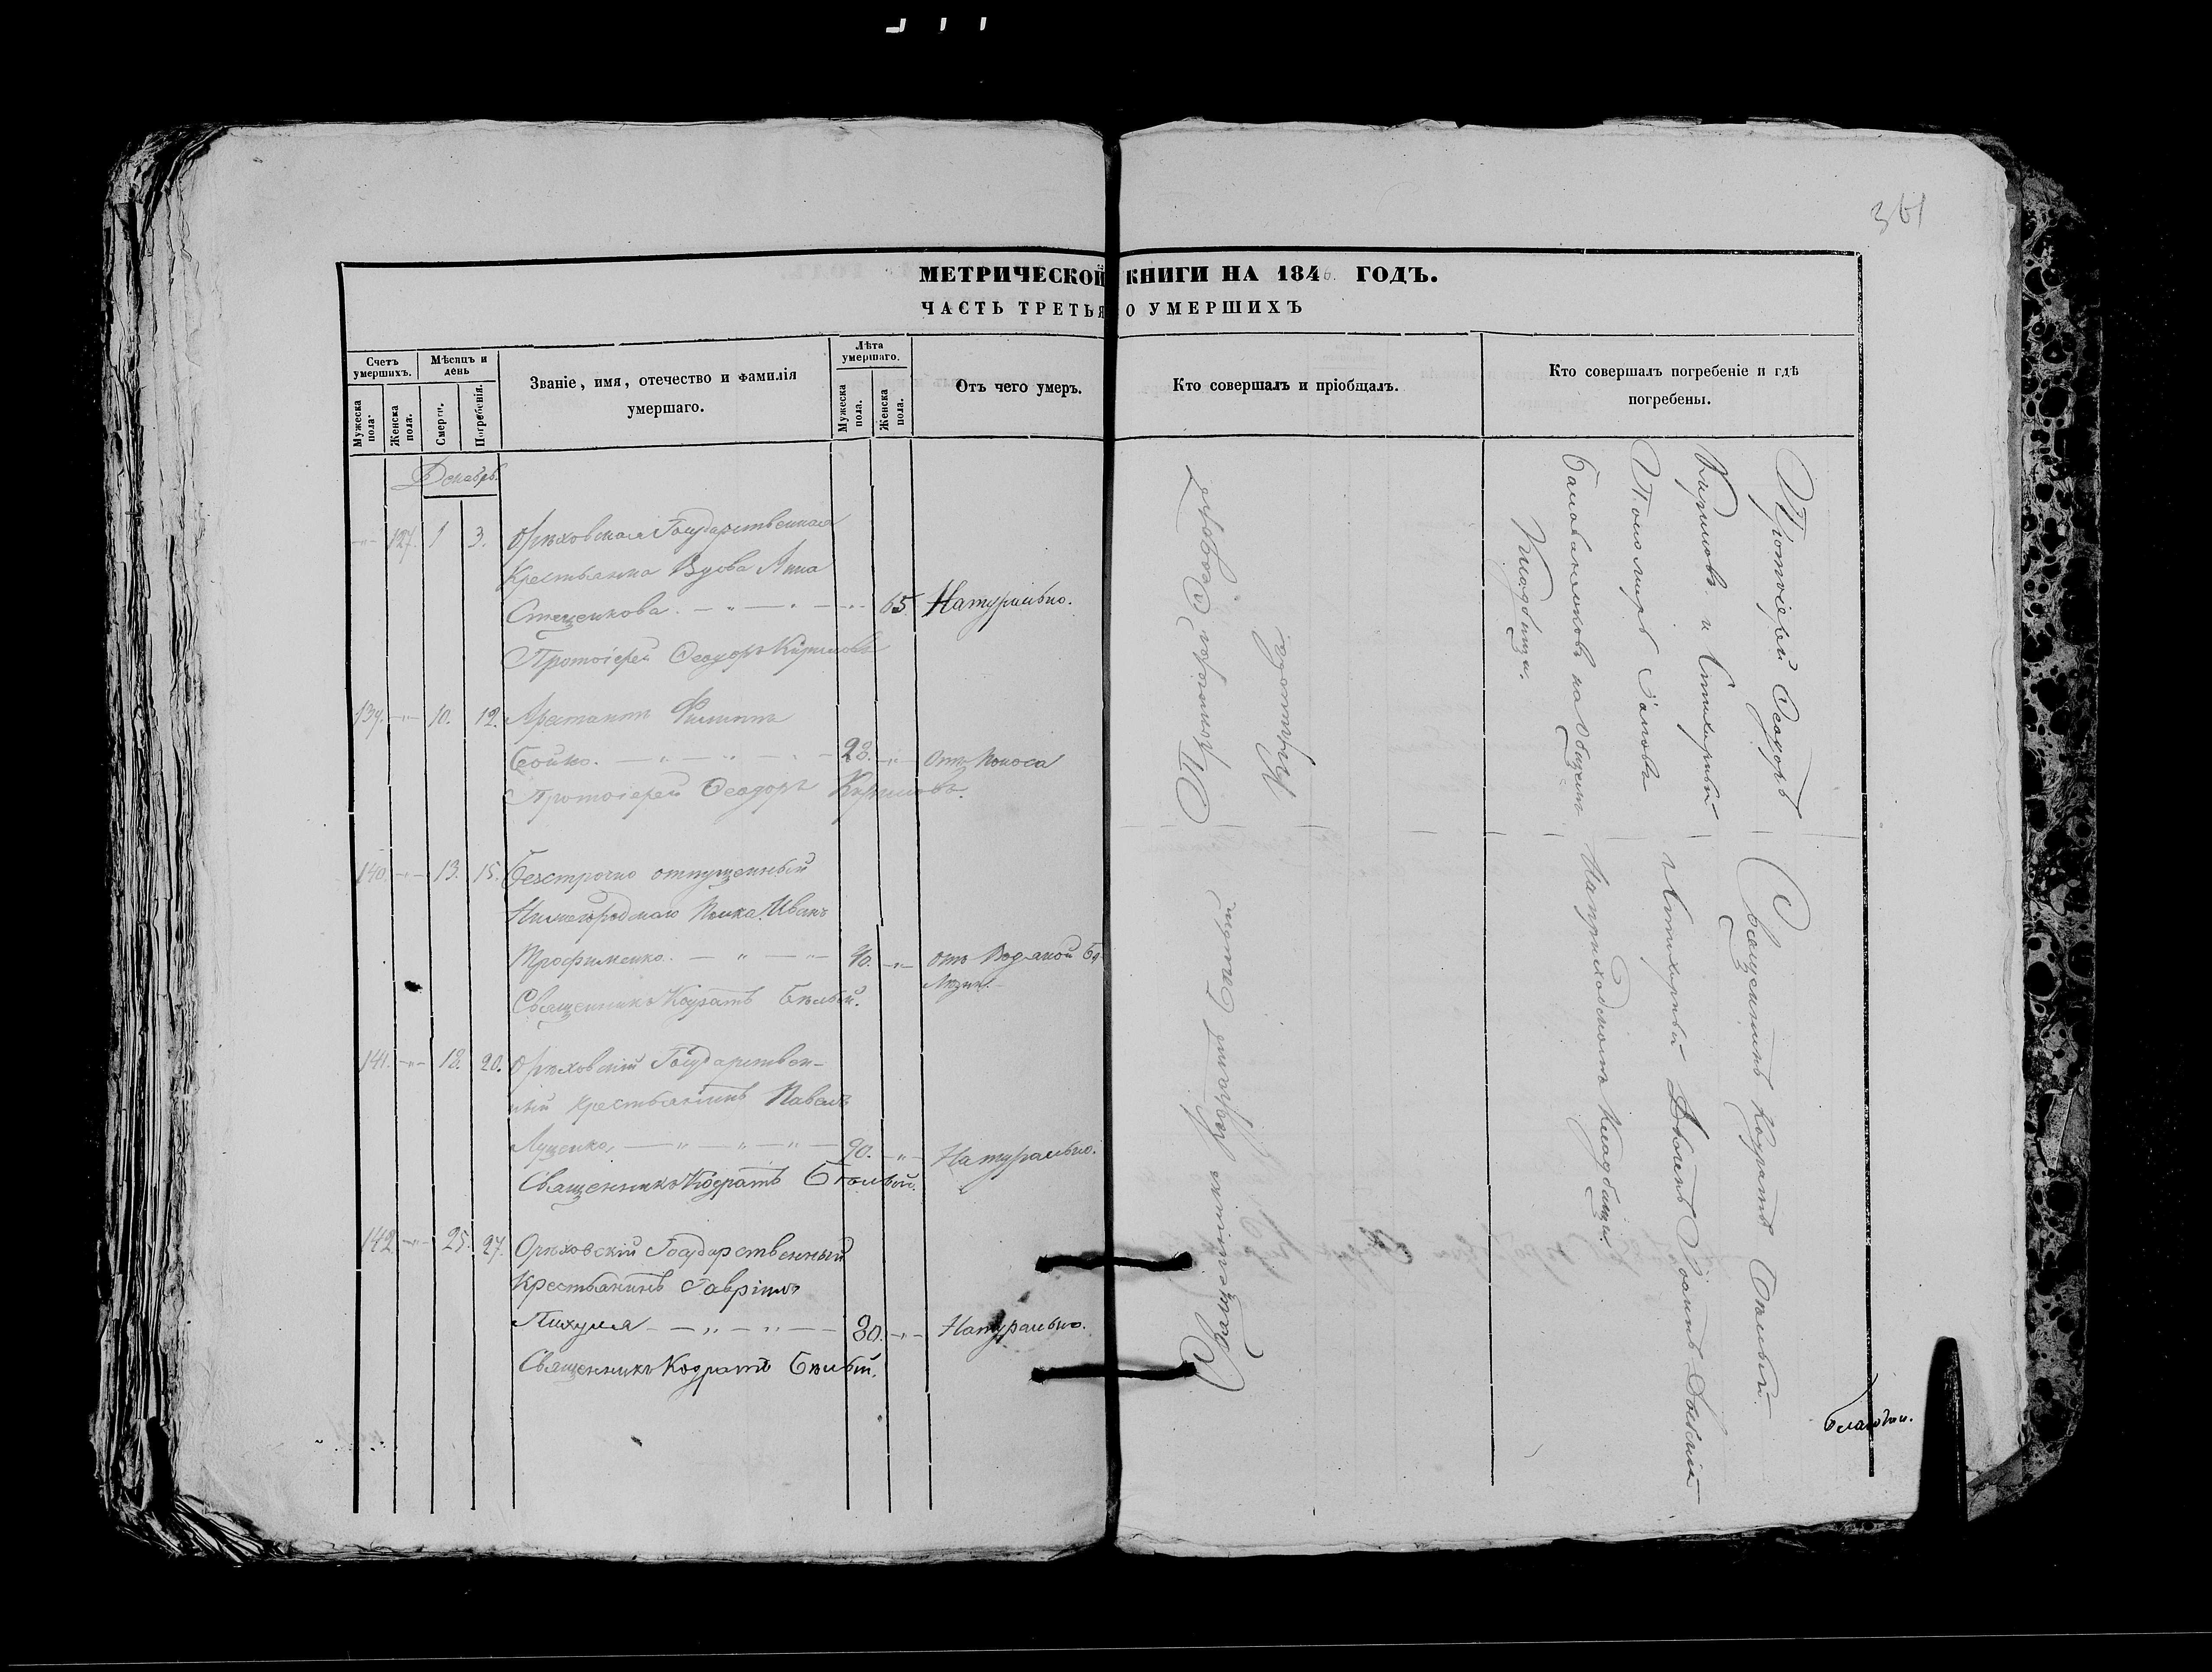 361
МЕТРИЧЕСКОЙ КНИГИ НА 1846 ГОДЪ.
ЧАСТЬ ТРЕТЬЯ О УМЕРШИХЪ
Счетъ умершихъ.
Мѣсяцъ и день
Званіе, имя, отечество и фамилія
умершаго.
Лѣта умершаго.
Отъ чего умеръ.
Кто совершалъ и пріобщалъ.
Кто совершалъ погребеніе и гдѣ
погребены.
Мужеска пола.
Женска пола.
Смерти.
Погребенія.
Мужеска пола.
Женска пола.
Декабрь.
127. 1 3. Орѣховская Государственная
Крестьянка Вдова Анна
Стеценкова. 65. Натурально.
Протоіерей Ѳеодоръ Кириловъ
139. 10. 12. Арестантъ Филиппъ
Бойко. 28. Отъ Поноса
Протоіерей Ѳеодоръ Кириловъ.
140. 13. 15. Безсрочно отпущенный
Нижегородскаго Полка Иванъ
Трофименко. 40. отъ Водяной Бо-
лѣзни.
Священникъ Кодратъ Бѣлый.
141. 18. 20. Орѣховскій Государствен-
ный Крестьянинъ Павелъ
Луценко, 90. Натурально.
Священникъ Кодратъ Бѣлый.
142. 25. 27. Орѣховскій Государственный
Крестьянинъ Гавріилъ
Пихуля 80. Натурально.
Священникъ Кодратъ Бѣлый.
Протоіерей Ѳеодоръ
Кириловъ.
Священникъ Кодратъ Бѣлый
Протоіерей Ѳеодоръ
Кириловъ и Стихарный
Пономарь
на Общемъ
Кладбищѣ.
Священникъ Кодратъ Бѣлый
и Стихарный Дьячекъ Іоаннъ
На приходскомъ Кладбищѣ.